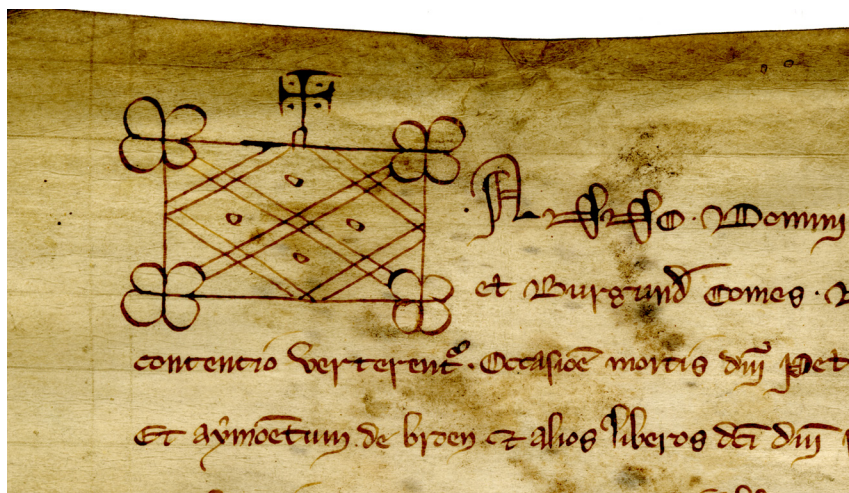 ANNO · Domini
et Burgund̄ Comes ·
contentio verterent᷑ · Occasiōe mortis dn̄i Pet
Et aymoētum de broen · ⁊ alios liberos dc̄i dn̄i